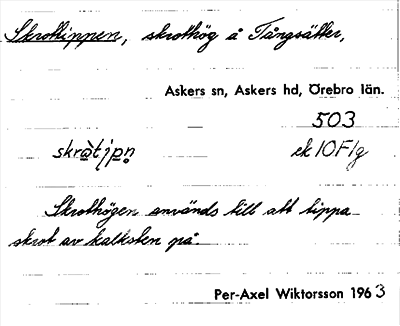 Skrottippen, skrothög å Tångsätter,
Askers sn, Askers hd, Örebro län.
503
skrò̀tịpṇ ek 10F1g
Skrothögen används till att tippa
skrot av kalksten på.
Per-Axel Wiktorsson 1963